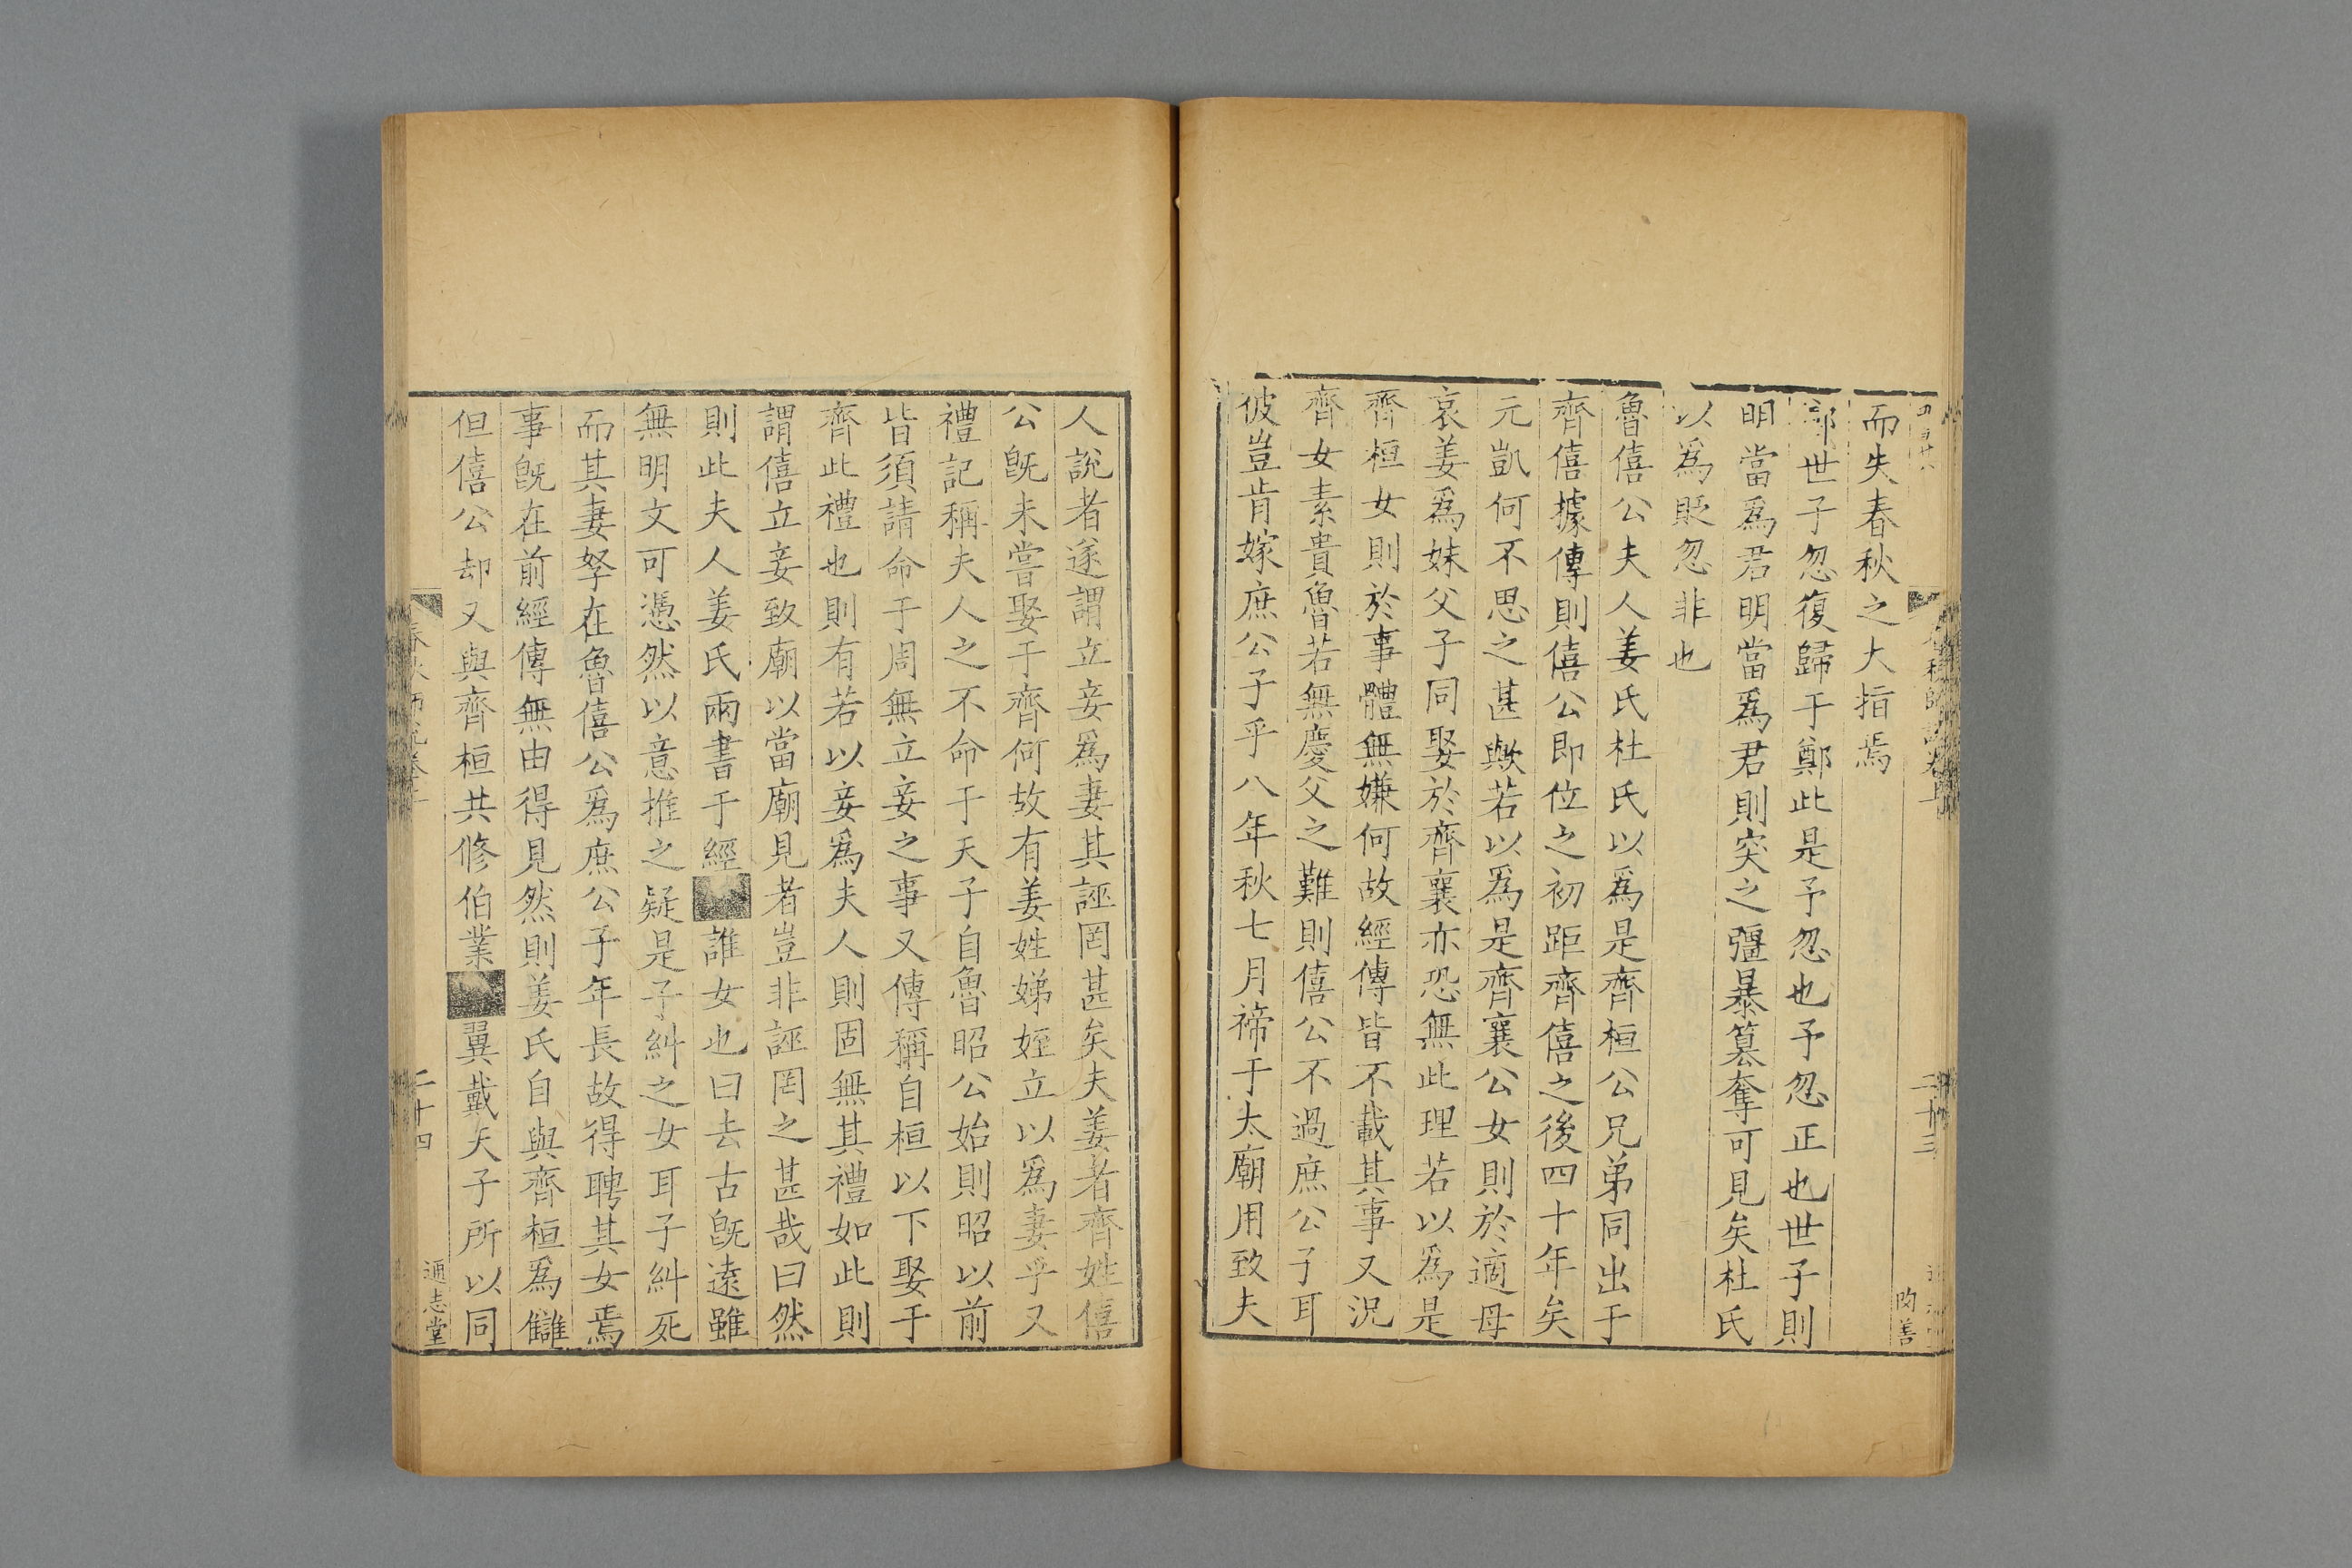 而失春秋之大指焉
鄭世子忽復歸于鄭此是予忽也予忽正也世子則
明當爲君明當爲君則突之彊暴簒奪可見矣杜氏
以爲貶忽非也
魯僖公夫人姜氏杜氏以爲是齊桓公兄弟同出于
齊僖據傳則僖公即位之初距齊僖之後四十年矣
元凱何不思之甚歟若以爲是齊襄公女則於適母
哀姜爲妹父子同娶於齊襄亦恐無此理若以爲是
齊桓女則於事體無嫌何故經傳皆不載其事又況
齊女素貴魯若無慶父之難則僖公不過庶公子耳
彼豈肯嫁庶公子乎八年秋七月禘于太廟用致夫
二十三
人說者遂謂立妾爲妻其誣罔甚矣夫姜者齊姓僖
公旣未嘗娶于齊何故有姜姓娣姪立以爲妻乎又
禮記稱夫人之不命于天子自魯昭公始則昭以前
皆須請命于周無立妾之事又傳稱自桓以下娶于
齊此禮也則有若以妾爲夫人則固無其禮如此則
謂僖立妾致廟以當廟見者豈非誣罔之甚哉曰然
則此夫人姜氏兩書于經誰女也曰去古旣遠雖
無明文可憑然以意推之疑是子糾之女耳子糾死
而其妻孥在魯僖公爲庶公子年長故得聘其女焉
事旣在前經傳無由得見然則姜氏自與齊桓爲讎
但僖公却又與齊桓共修伯業翼戴天子所以同
二十四
通志堂